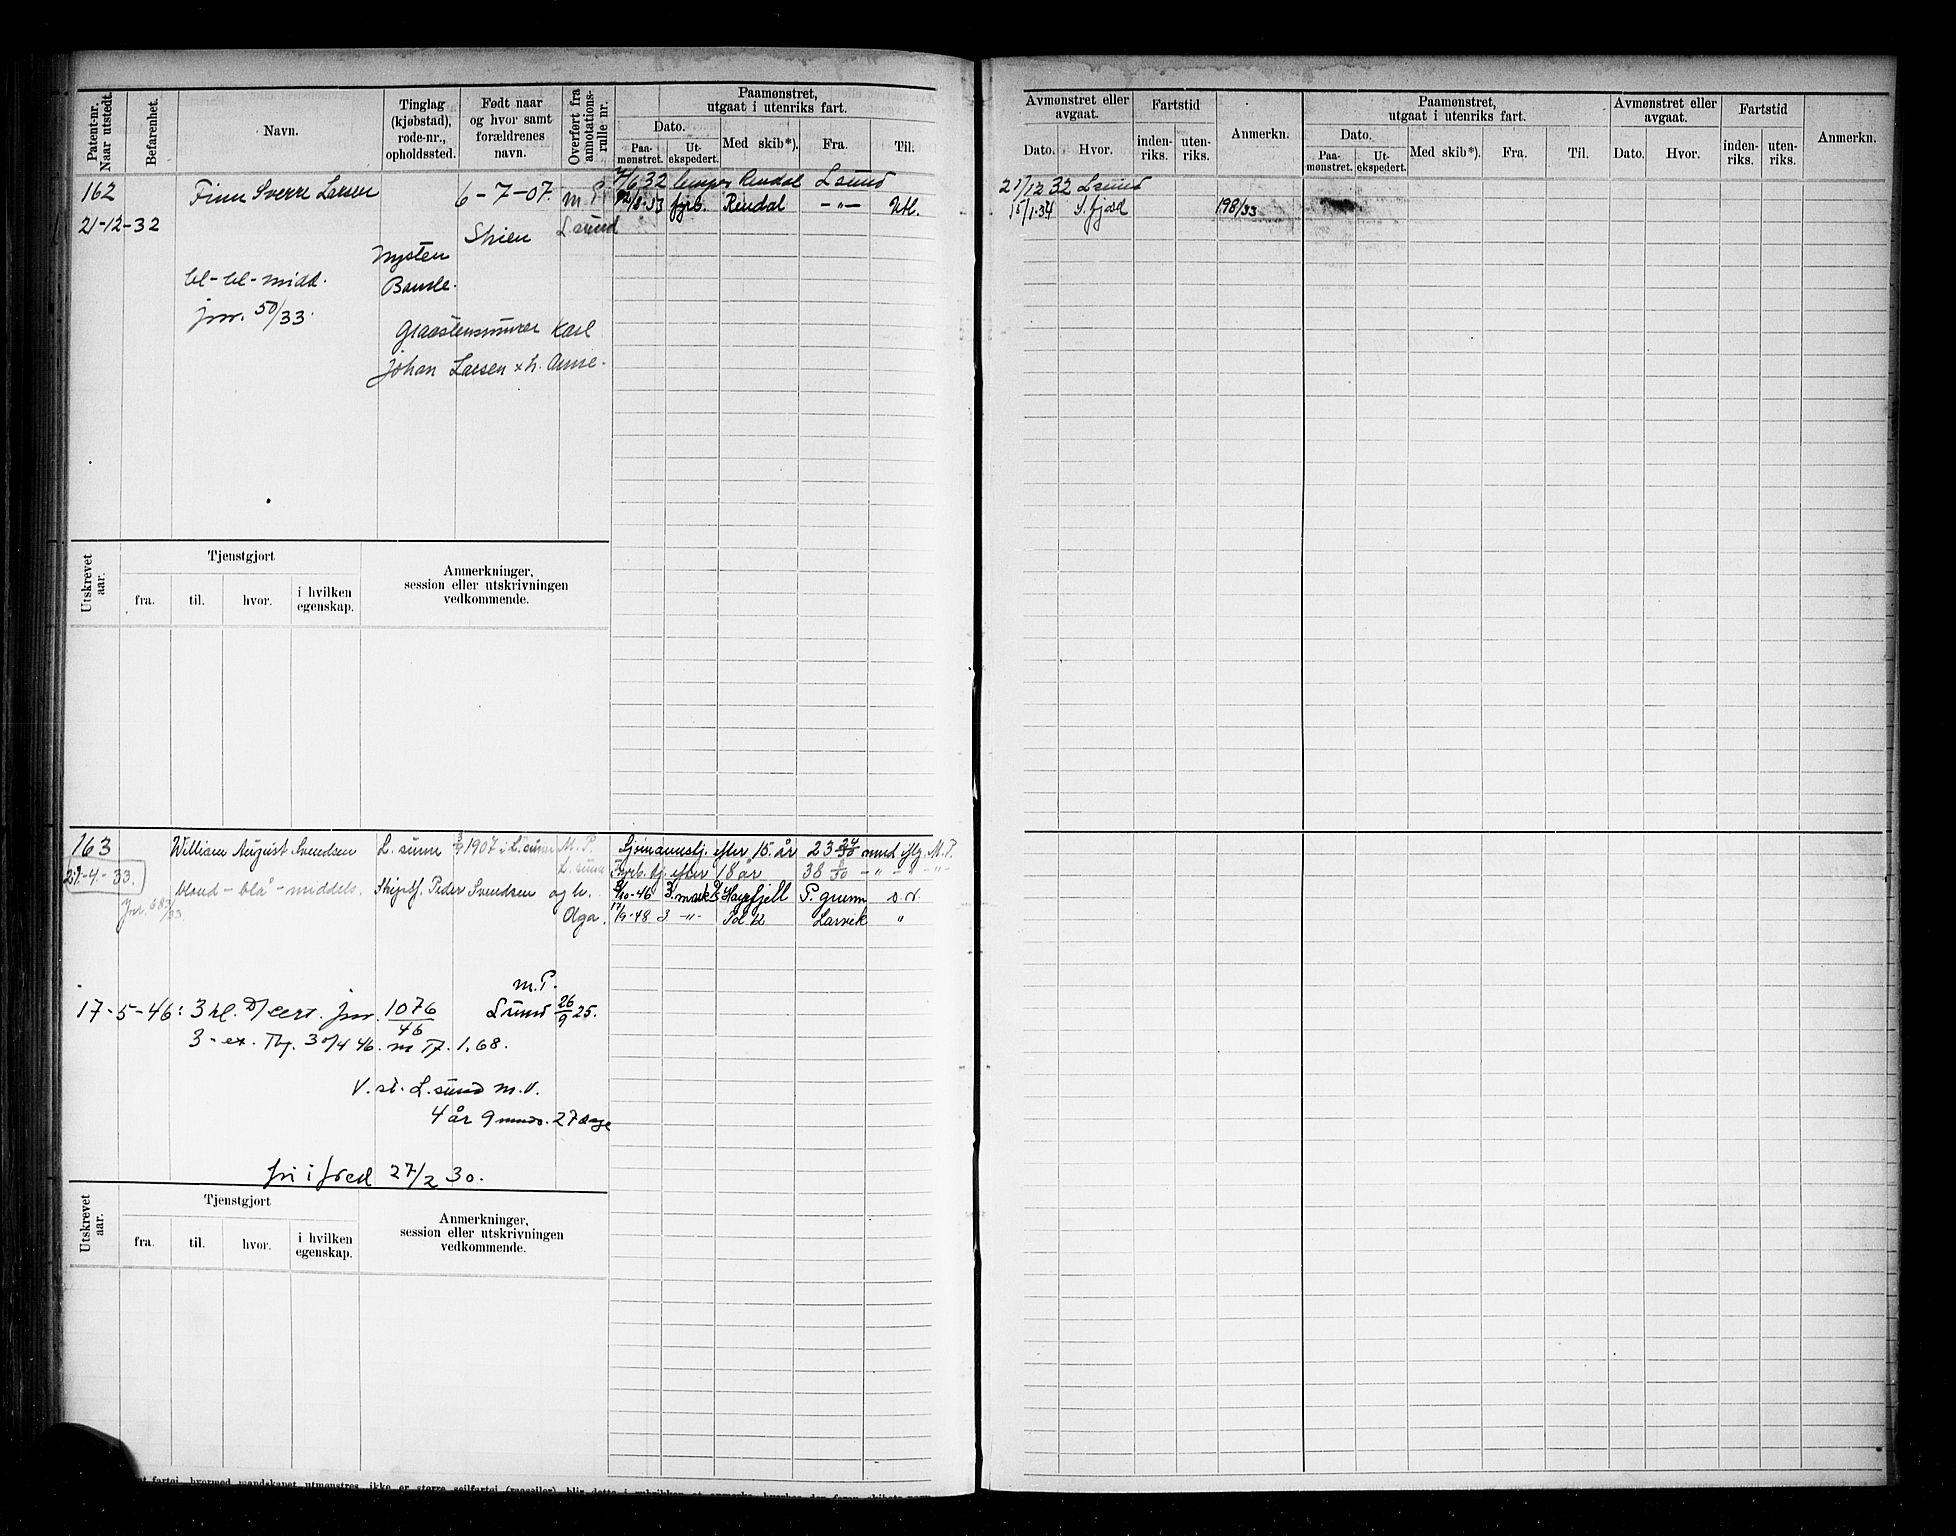 Patent-nr. Naar utstedt.
Befarenhet.
Navn.
Tinglag (kjøbstad), rode-nr., opholdssted.
Født naar og hvor samt forældrenes navn.
Overført fra annotations-rulle nr.
Paamønstret, utgaat i utenriks fart.
Dato.
Paa-mønstret.
Ut-ekspedert.
Med skib*).
Fra.
Til.
Avmønstret eller avgaat.
Dato.
Hvor.
Fartstid
inden-riks.
uten-riks.
Anmerkn.
Paamønstret, utgaat i utenriks fart.
Dato.
Paa-mønstret.
Ut-ekspedert.
Med skib*).
Fra.
Til.
Avmønstret eller avgaat.
Dato.
Hvor.
Fartstid
inden-riks.
uten-riks.
Anmerkn.
162 Finn Sverre Larsen 6-7-07. m. P. 7/6 32 Rendal Lsund 21/12 32 Lsund
fyrb. Rendal -"- Utl. 15/1-34 S.fjord 198/33
21-12-32 Skien Lsund
Nysten
bl-bl-midd. Bamle.
jnr. 50/33.
Graastensmurer Karl
Johan Larsen + h. Anne.
Utskrevet aar.
Tjenstgjort
fra.
til.
hvor.
i hvilken egenskap.
Anmerkninger, session eller utskrivningen vedkommende.
163 William August Svendsen L. sund 1907 i L. sund M. P. Sjømannstj. efter 15 år 23 mnd iflg. M. P.
27-4-33. L. sund Fyrb. tj. efter 18 år 38 -"- -"-
blond - blå - middels. Skipsf. Peder Svendsen og h. 10-46 3. mask. Høgefjell P. grunn
Jnr. 683/33. Olga. 17/9-48 3 -"- Larvik "
m. P.
17-5-46: 3 kl. D/cert. jnr. 1076/46 Lsund 26/9 25.
3-ex. Tbg. 30/4 46.
V. st. L.sund m. V.
4 år 9 mnds. 27 dage
fri i fred 27/2 30.
Utskrevet aar.
Tjenstgjort
fra.
til.
hvor.
i hvilken egenskap.
Anmerkninger, session eller utskrivningen vedkommende.